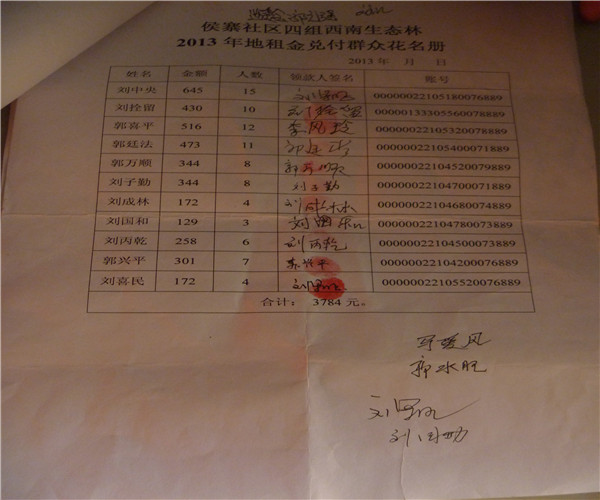 侯寨社区四组西南生态林
2013年地租金兑付群众花名册
2013年 月 日
姓名 金额 人数 领款人签名 账号
刘中央 645 15 00000022105180076889
刘拴留 430 10 刘拴留 00000013305560078889
郭喜平 516 12 李凤玲 00000022105320078889
郭廷法 473 11 00000022105400071889
郭万顺 344 8 郭万顺 00000022104520079889
刘子勤 344 8 刘子勤 00000022104700071889
刘成林 172 4 刘成林 00000022104680074889
刘国和 129 3 00000022104780073889
刘丙乾 258 6 刘丙乾 00000022104500073889
郭兴平 301 7 00000022104200076889
刘喜民 172 4 00000022105520076889
合计: 3784元。